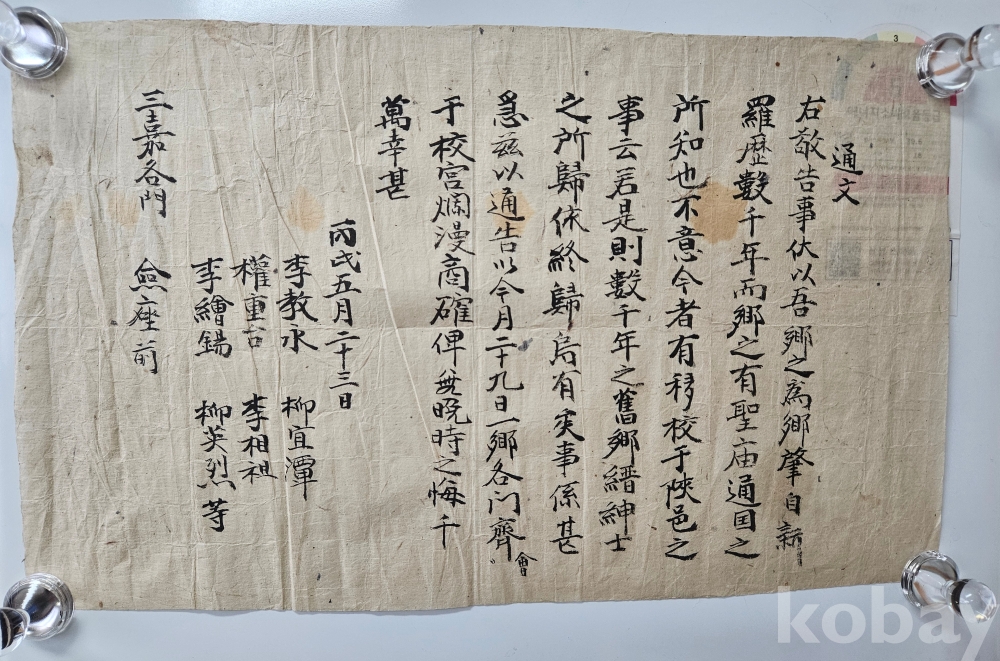 通文
右敬告事伏以吾鄉之爲鄉肇自新
羅歷數千年而鄉之有聖庙通国之
所知也不意今者有移校于陜邑之
事云若是則數千年之舊鄉縉紳士
之所歸依終歸烏有矣事係甚
急茲以通告以今月二十九日一鄉各门齊會
于校宮爛漫商確俾免晩時之悔千
萬幸甚
丙戌五月二十三日
李教永 柳宜潭
權重 李相祖
李繪錫 柳英烈 等
三嘉各門 僉座前
kobay
3